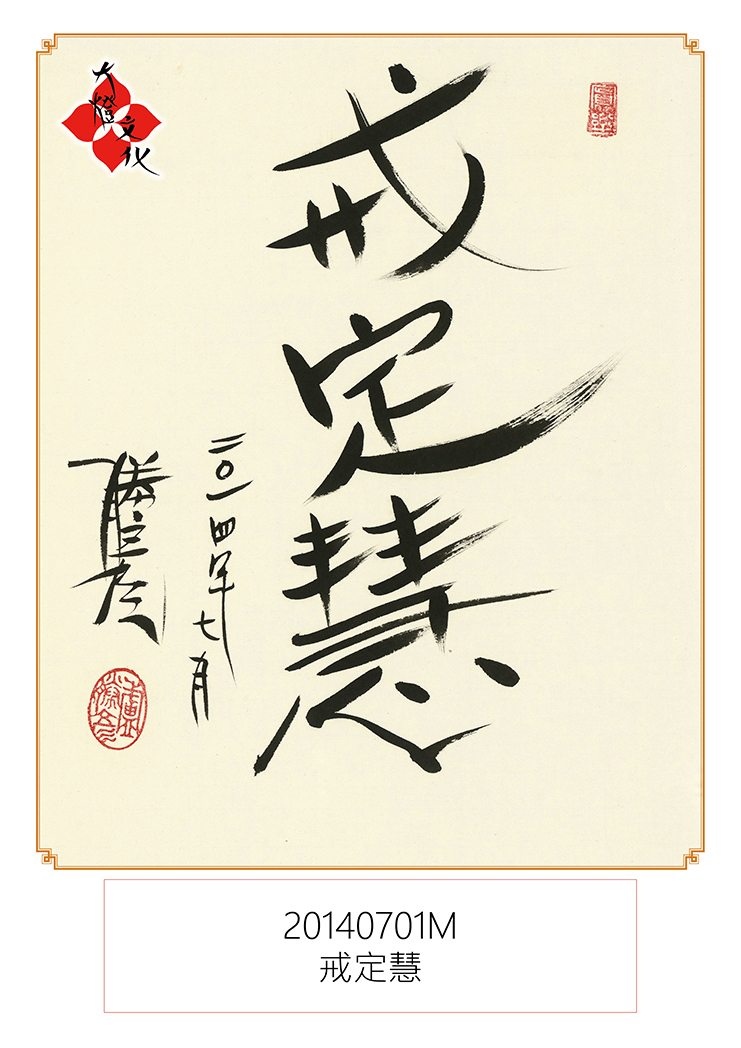 大燈文化
戒定慧
二〇一四年七月
20140701M
戒定慧